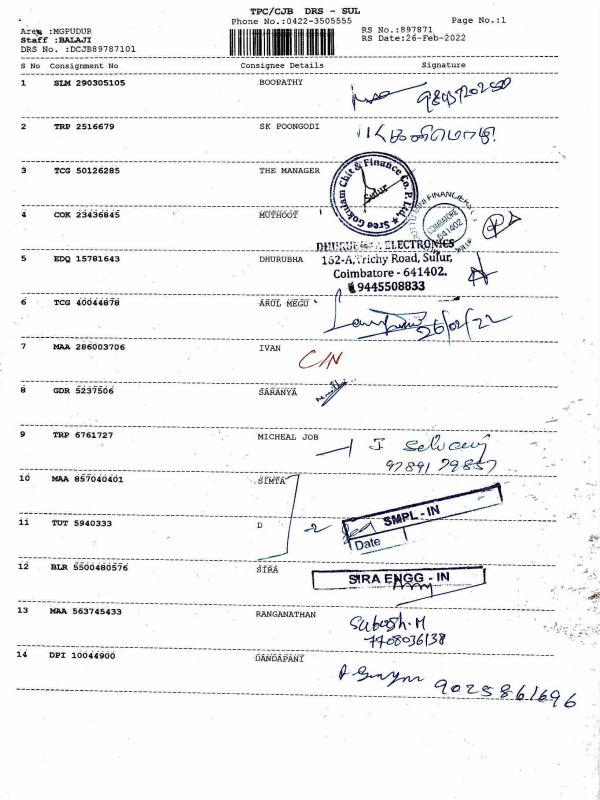 TPC/CJB DRS - SUL
Phone No.:0422-3505555 Page No.:1
Area :MGPUDUR RS No.:897871
Staff :BALAJI RS Date:26-Feb-2022
DRS No. :DCJB89787101
S No Consignment No Consignee Details Signature
1 SLM 290305105 BOOPATHY
2 TRP 2516679 SK POONGODI
3 TCG 50126285 THE MANAGER
Sree Gokulam Chit & Finance Co. P. Ltd. Sulur
4 COK 23436845 MUTHOOT
FINANCIERS COIMBATORE 641402
DHURUBHA ELECTRONICS
5 EDQ 15781643 DHURUBHA 162-A, Trichy Road, Sulur,
Coimbatore - 641402.
9445508833
6 TCG 40044878 ARUL MEGU
26/02/22
7 MAA 286003706 IVAN C/N
8 GDR 5237506 SARANYA
9 TRP 6761727 MICHEAL JOB
97891 79857
10 MAA 857040401 SIMTA
SMPL - IN
11 TUT 5940333 D -2
Date
12 BLR 5500480576 SIRA
SIRA ENGG - IN
13 MAA 563745433 RANGANATHAN Subash.M
7708036138
14 DPI 10044900 DANDAPANI
9025861696